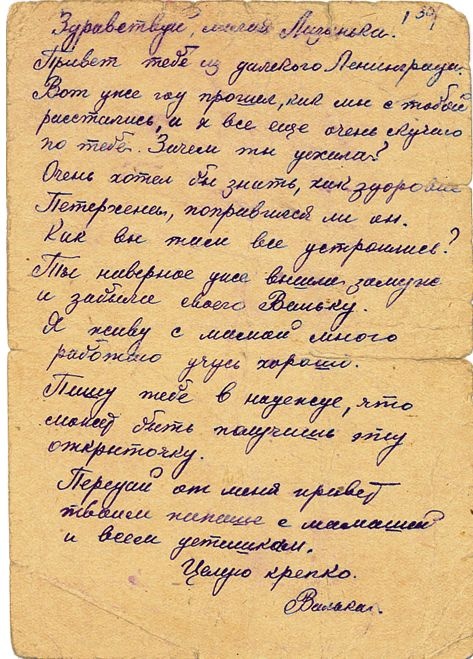 Здравствуй, милая Лизонька.
Привет тебе из далекого Ленинграда.
Вот уже год прошел, как мы с тобой
расстались, и я все еще очень скучаю
по тебе. Зачем ты уехала?
Очень хотел бы знать, как здоровие
поправился ли он.
Как вы там все устроились?
Ты наверное уже вышла замуж
и забыла своего Вальку.
Я живу с мамой много
работаю учусь хорошо.
Пишу тебе в надежде, что
может быть получишь эту
открыточку.
Передай от меня привет
твоим папаше с мамашей
и всем детишкам.
Целую крепко.
Валька.